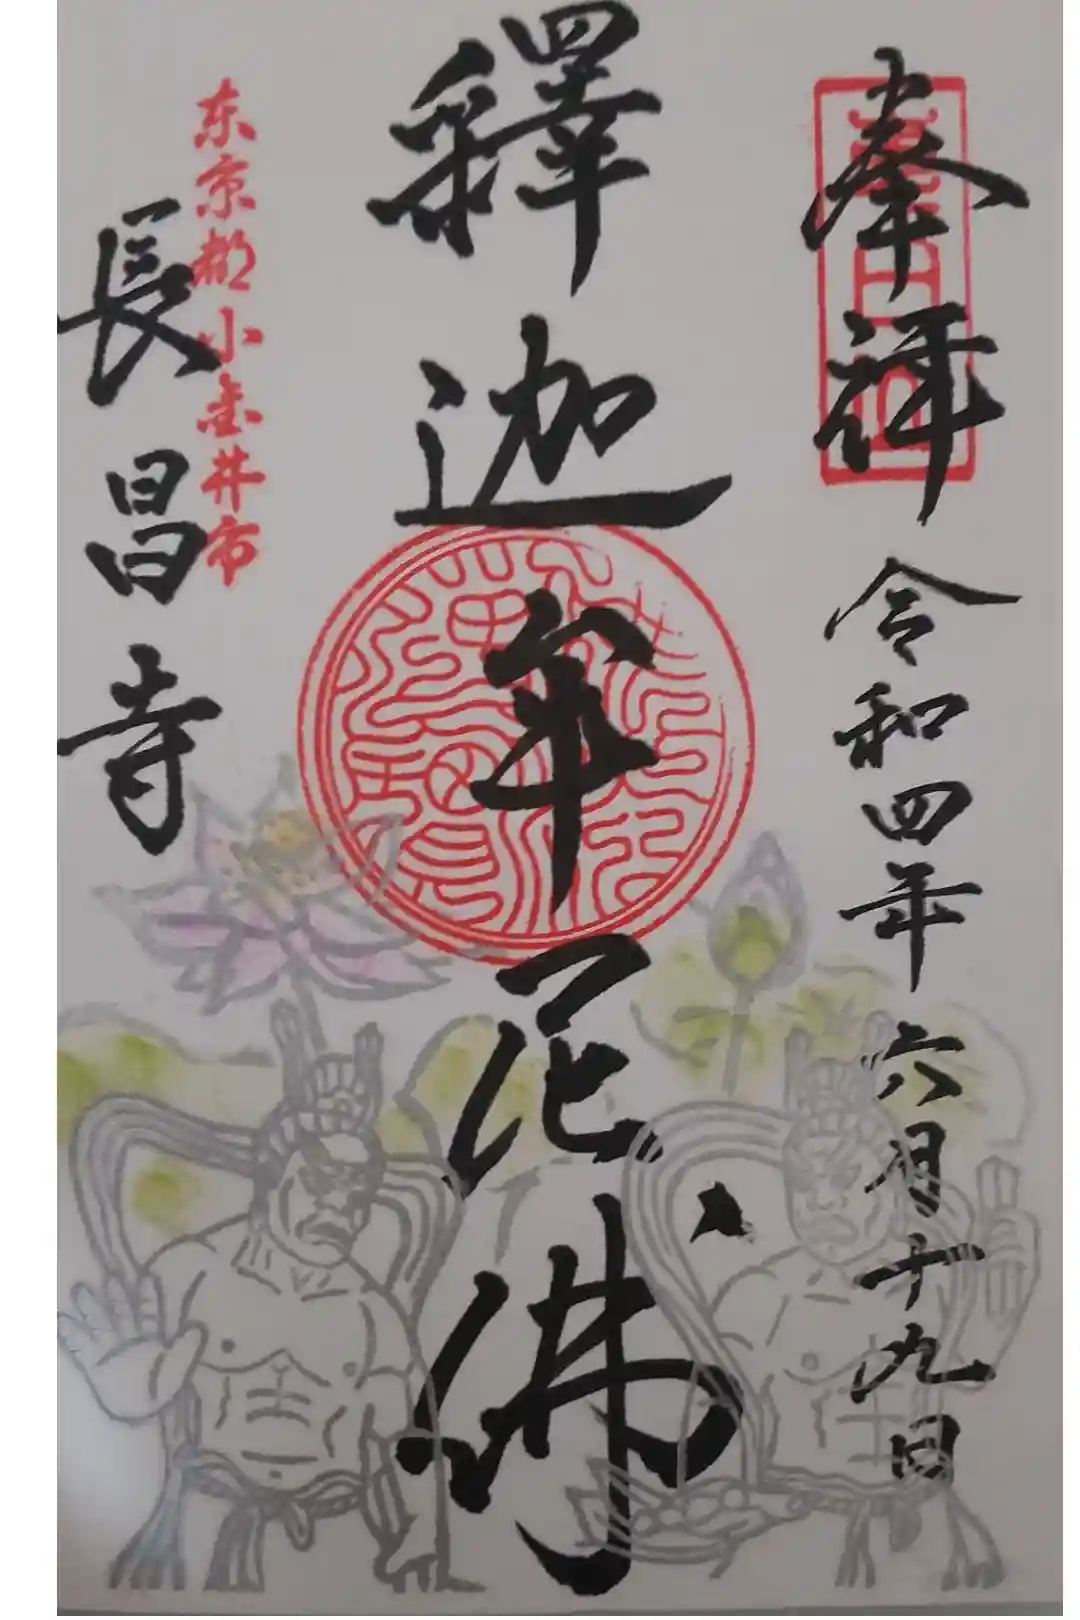 奉拝
令和四年六月十九日
釋迦牟尼佛
东京都小金井市
長昌寺